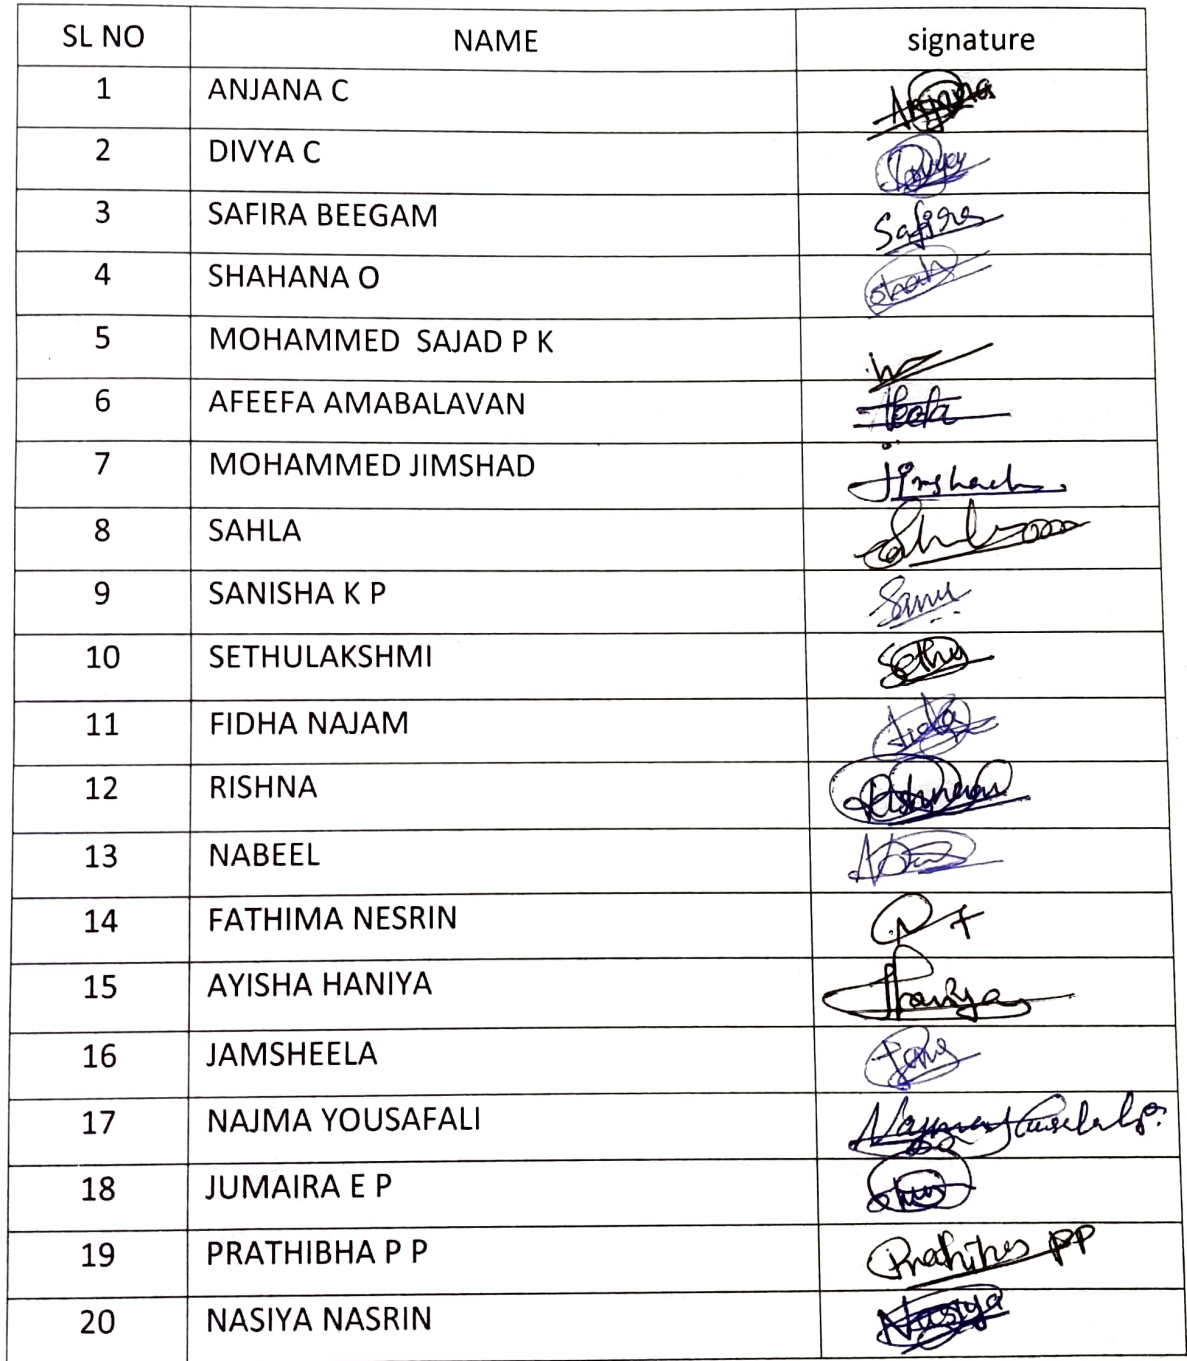 SL NO NAME signature
1 ANJANA C Anjana
2 DIVYA C
3 SAFIRA BEEGAM Safira
4 SHAHANA O
5 MOHAMMED SAJAD P K
6 AFEEFA AMABALAVAN
7 MOHAMMED JIMSHAD Jimshad
8 SAHLA
9 SANISHA K P
10 SETHULAKSHMI Sethu
11 FIDHA NAJAM
12 RISHNA
13 NABEEL
14 FATHIMA NESRIN
15 AYISHA HANIYA Haniya
16 JAMSHEELA
17 NAJMA YOUSAFALI
18 JUMAIRA E P
19 PRATHIBHA P P
20 NASIYA NASRIN Nasiya